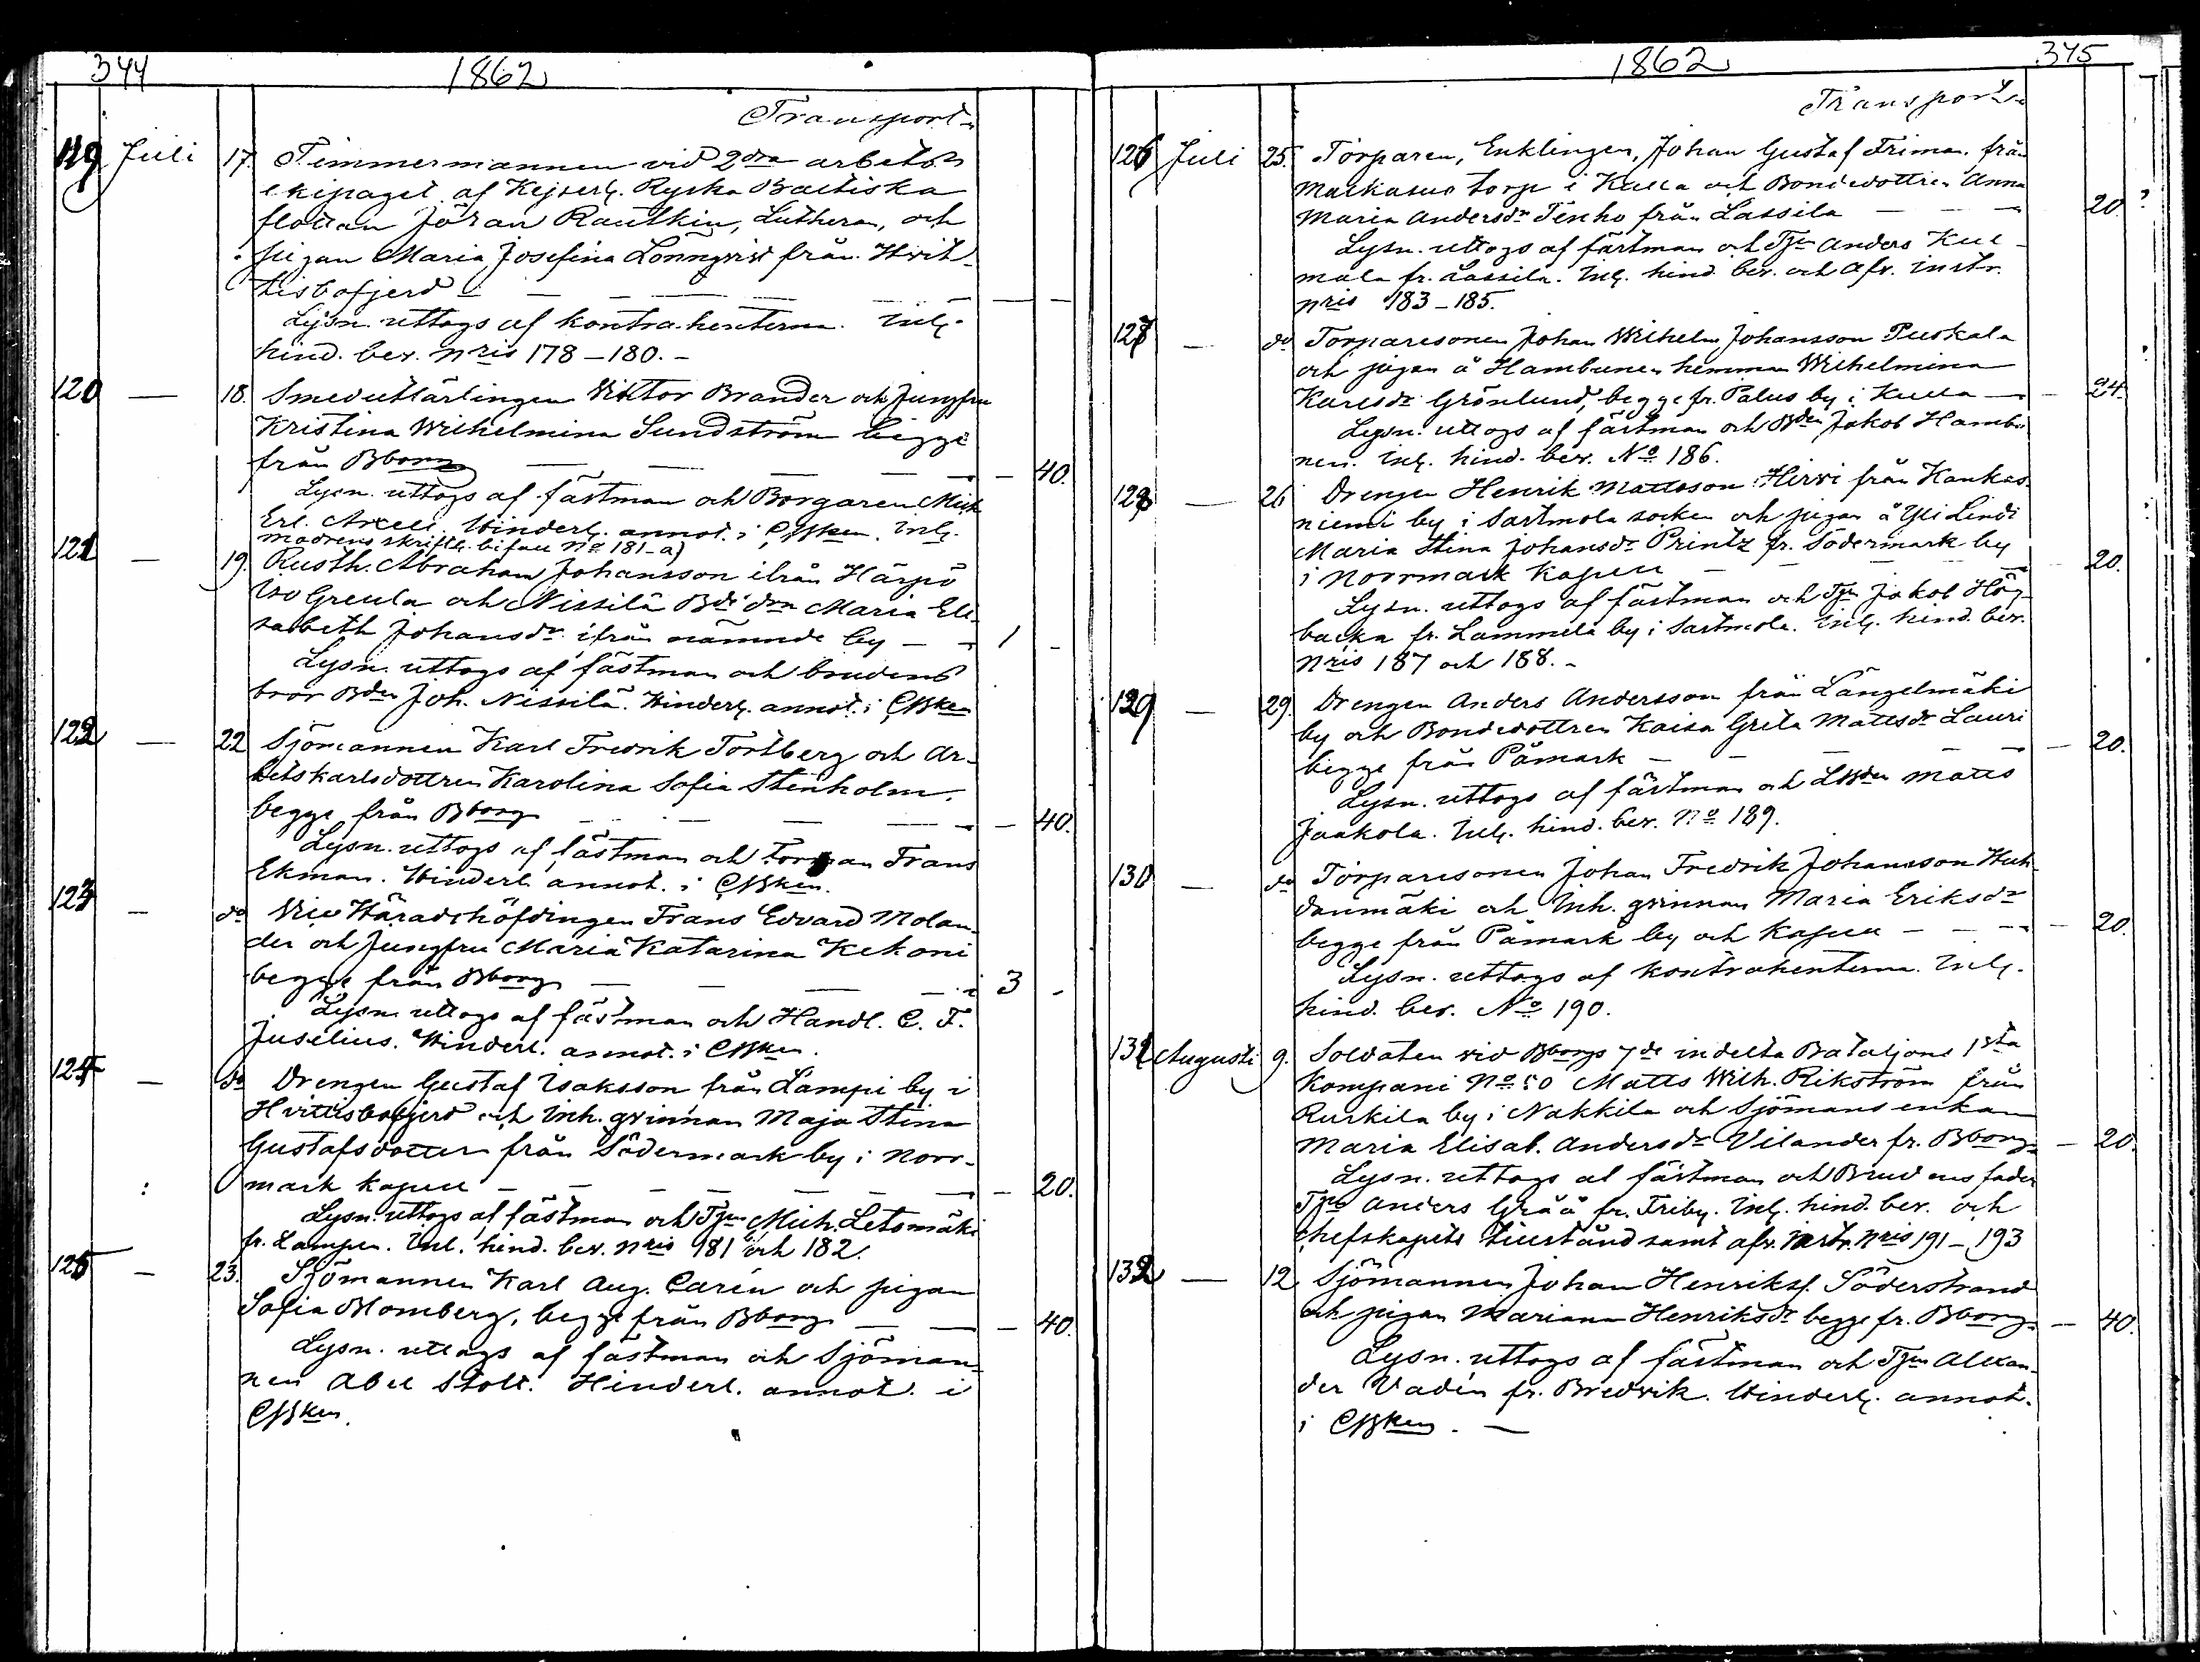 344
1862
Transport
119 Juli 17. Timmermannen vid 2dra arbets
ekipaget af Kejserl. Ryska Baltiska
flottan Jöran Rautkin, Lutheran, och
pigan Maria Josefina Lönnqvist från Hvit-
tisbofjerd — — — — — — —
Lysn. uttogs af kontrahenterna. Inlg.
hind. bev. Nris 178–180. –
120 — 18. Smedutlärlingen Viktor Brander och Jungfru
Kristina Wilhelmina Sundström begge
från Bborg — — — — — 40.
Lysn. uttogs af fästman och Borgaren Mich
Erl. Axell. Hinderl. annot. i CBken. Inlg.
modrens skriftl. bifall No 181–a)
121 — 19. Rusth. Abraham Johansson ifrån Härpö
Iso Greula och Nissilä Bde dra Maria Eli-
sabeth Johansdr ifrån nämnde by — — 1 –
Lysn. uttogs af fästman och brudens
bror Bden Joh. Nissilä. Hinderl. annot. i CBken
122 — 22 Sjömannen Karl Fredrik Torstberg och Ar-
betskarlsdottren Karolina Sofia Stenholm,
begge från Bborg — — — — — 40.
Lysn. uttogs af fästman och Forman Frans
Ekman. Hinderl. annot. i CBken.
123 — do Vice Häradshöfdingen Frans Edvard Molan-
der och Jungfru Maria Katarina Kekoni
begge från Bborg — — — — 3 –
Lysn. uttogs af fästman och Handl. C. F.
Juselius. Hinderl. annot. i CBken.
124 — do Drengen Gustaf Isaksson från Lampi by i
Hvittisbofjerd och Inh. qvinnan Maja Stina
Gustafsdotter från Södermark by i Norr-
mark kapell — — — — — — 20.
Lysn. uttogs af fästman och Tpn Mich. Letsmäki
fr. Lampen. Inl. hind. bev. Nris 181 och 182.
125 — 23. Sjömannen Karl Aug. Carén och pigan
Sofia Blomberg, begge från Bborg — — — 40.
Lysn. uttogs af fästman och Sjöman-
nen Abel Stoll. Hinderl. annot. i
CBken.
1862
345
Transport
126 Juli 25. Torparen, Enklingen, Johan Gustaf Friman från
Matkasuo torp i Kulla och Bondedottren Anna
Maria Andersdr Tenho från Lassila — — 20.
Lysn. uttogs af fästman och Tpn Anders Kul-
mala fr. Lassila. Inlg. hind. bev. och afv. instr.
Nris 183–185.
127 — do Torparesonen Johan Wilhelm Johansson Puskala
och pigan å Hambunen hemman Wilhelmina
Karlsdr Grönlund, begge fr. Palus by i Kulla — 24.
Lysn. uttogs af fästman och Bden Jakob Hambu-
nen. Inlg. hind. bev. No 186.
128 — 26 Drengen Henrik Mattsson Hirvi från Kankas-
niemi by i Sastmola socken och pigan å Yli Lindi
Maria Stina Johansdr Printz fr. Södermark by
i Norrmark kapell — — — — 20.
Lysn. uttogs af fästman och Tpn Jakob Hög-
backa fr. Lammela by i Sastmola. Inlg. hind. bev.
Nris 187 och 188. –
129 — 29. Drengen Anders Andersson från Längelmäki
by och Bondedottren Kaisa Greta Mattsdr Lauri
begge från Påmark — — — — 20.
Lysn. uttogs af fästman och LBden Matts
Jaakola. Inlg. hind. bev. No 189.
130 — do Torparesonen Johan Fredrik Johansson Huh-
danmäki och Inh. qvinnan Maria Eriksdr
begge från Påmark by och kapell — — — 20.
Lysn. uttogs af kontrahenterna. Inlg.
hind. bev. No 190.
131 Augusti 9. Soldaten vid Bborgs 7de indelta Bataljons 1sta
kompani No 50 Matts Wilh. Rikström från
Ruskila by i Nakkila och Sjömansenkan
Maria Elisab. Andersdr Vilander fr. Bborg — 20.
Lysn. uttogs af fästman och Brudens fader
Tpn Anders Gråå fr. Friby. Inlg. hind. bev. och
chefskapets tillstånd samt afv. instr. Nris 191–193
132 — 12 Sjömannen Johan Henriksf. Söderstrand
och pigan Mariana Henriksdr begge fr. Bborg — 40.
Lysn. uttogs af fästman och Tpn Alexan-
der Vadén fr. Bredvik. Hinderl. annot.
i CBken. —